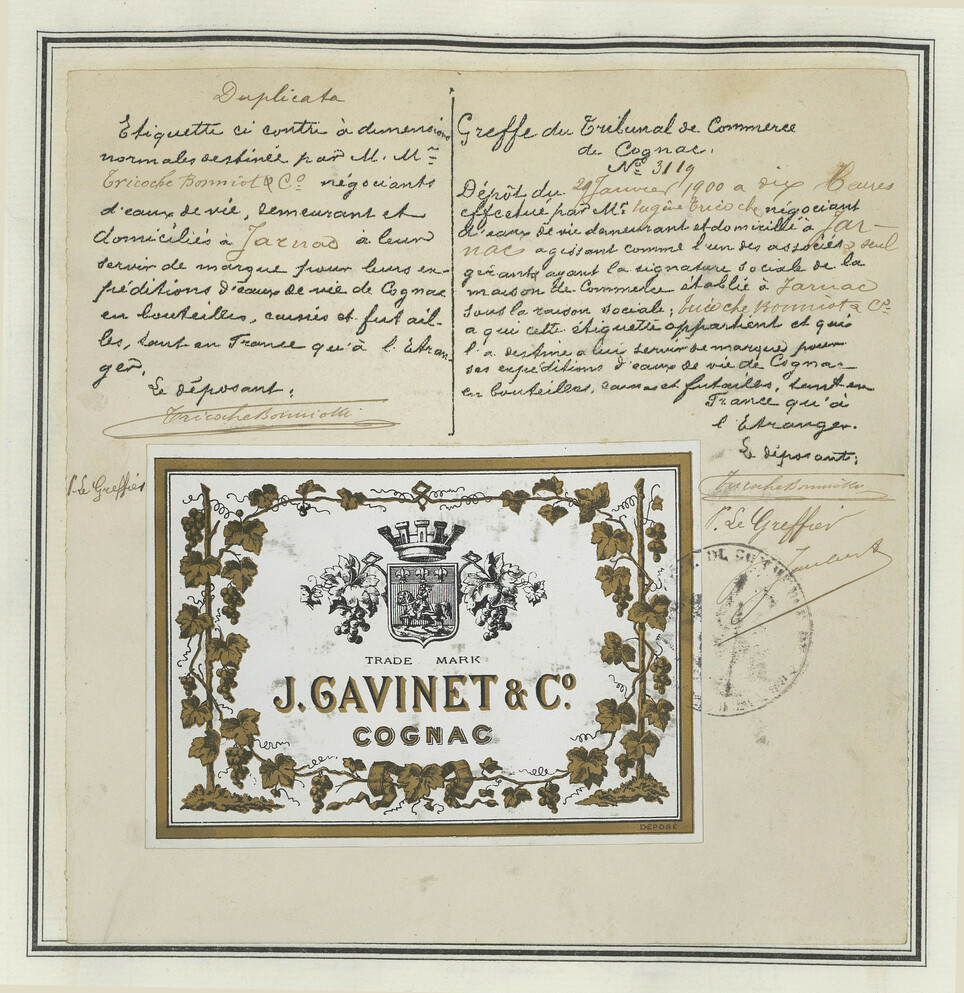 Duplicata
Etiquette ci contre à dimensions
normales destinée par M. Mrs
Tricoche Bonniot & Co négociants
d'eaux de vie, demeurant et
domiciliés à Jarnac à leur
servir de marque pour leurs ex-
péditions d'eaux de vie de Cognac
en bouteilles, caisses et futail-
les, tant en France qu'à l'Etran-
ger.
Le déposant:
Tricoche Bonniot & Co
P. Le Greffier
Greffe du Tribunal de Commerce
de Cognac.
No 3119
Dépôt du 29 Janvier 1900 a dix Heures
effectué par Mr Eugène Tricoche négociant
d'eaux de vie demeurant et domicilié à Jar-
nac agissant comme l'un des associés seul
gérants ayant la signature sociale de la
maison de Commerce établie à Jarnac
sous la raison sociale; Tricoche Bonniot & Co
a qui cette étiquette appartient et qui
l'a destine a lui servir de marque pour
ses expéditions d'eaux de vie de Cognac
en bouteilles, caisses et futailles, tant en
France qu'à
l'Etranger.
Le déposant:
Tricoche Bonniot & Co
P. Le Greffier
TRADE MARK
J. GAVINET & Co.
COGNAC
DÉPOSÉ